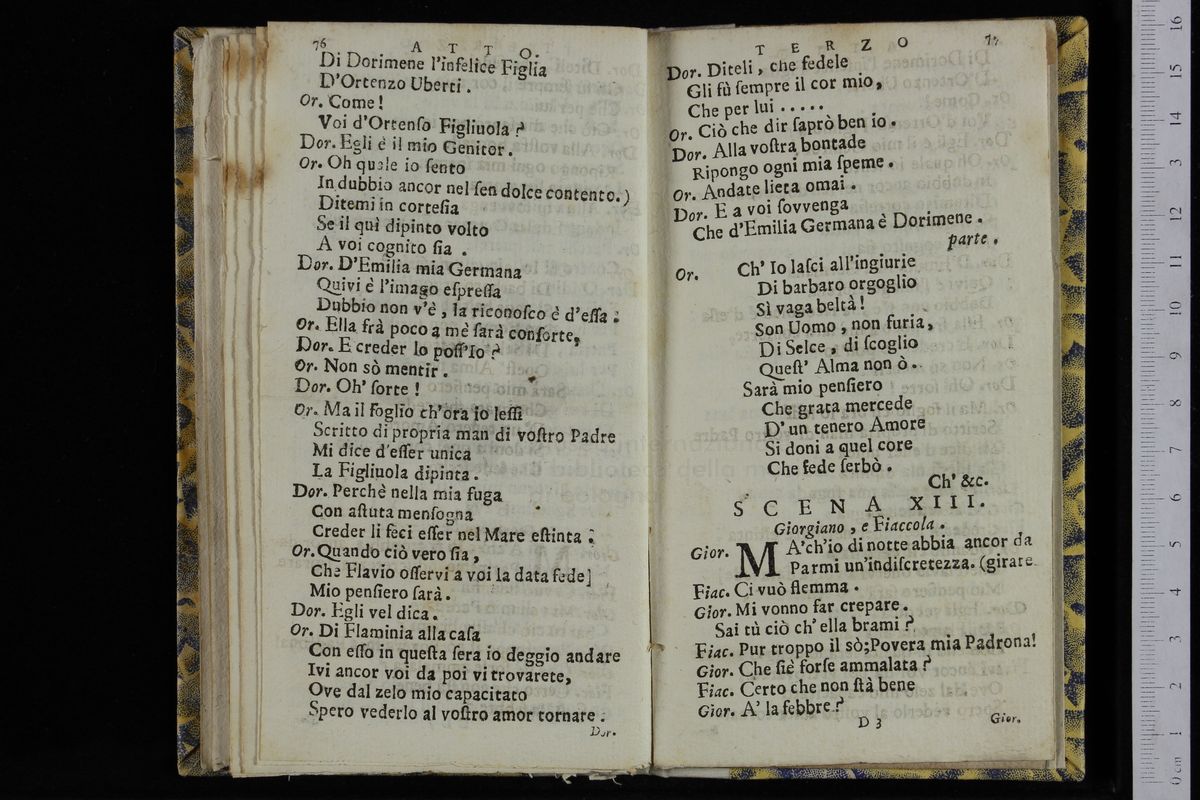 76 ATTO
Di Dorimene l'infelice Figlia
D'Ortenzo Uberti.
Or. Come!
Voi d'Ortenſo Figliuola?
Dor. Egli è il mio Genitor.
Or. Oh quale io ſento
In dubbio ancor nel ſen dolce contento.)
Ditemi in corteſia
Se il quì dipinto volto
A voi cognito ſia.
Dor. D'Emilia mia Germana
Quivi è l'imago eſpreſſa
Dubbio non v'è, la riconoſco è d'eſſa:
Or. Ella frà poco a mè ſarà conſorte,
Dor. E creder lo poſſ'Io?
Or. Non sò mentir.
Dor. Oh' ſorte!
Or. Ma il foglio ch'ora io leſſi
Scritto di propria man di voſtro Padre
Mi dice d'eſſer unica
La Figliuola dipinta.
Dor. Perchè nella mia fuga
Con aſtuta menſogna
Creder li feci eſſer nel Mare eſtinta:
Or. Quando ciò vero ſia,
Che Flavio oſſervi a voi la data fede]
Mio penſiero ſarà.
Dor. Egli vel dica.
Or. Di Flaminia alla caſa
Con eſſo in queſta ſera io deggio andare
Ivi ancor voi da poi vi trovarete,
Ove dal zelo mio capacitato
Spero vederlo al voſtro amor tornare.
Dor.
TERZO 77
Dor. Diteli, che fedele
Gli fù ſempre il cor mio,
Che per lui .....
Or. Ciò che dir ſaprò ben io.
Dor. Alla voſtra bontade
Ripongo ogni mia ſpeme.
Or. Andate lieta omai.
Dor. E a voi ſovvenga
Che d'Emilia Germana è Dorimene.
parte.
Or. Ch' Io laſci all'ingiurie
Di barbaro orgoglio
Sì vaga beltà!
Son Uomo, non furia,
Di Selce, di ſcoglio
Queſt' Alma non ò.
Sarà mio penſiero
Che grata mercede
D' un tenero Amore
Si doni a quel core
Che fede ſerbò.
Ch' &c.
SCENA XIII.
Giorgiano, e Fiaccola.
Gior. MA'ch'io di notte abbia ancor da
Parmi un'indiſcretezza. (girare
Fiac. Ci vuò flemma.
Gior. Mi vonno far crepare.
Sai tù ciò ch' ella brami?
Fiac. Pur troppo il sò;Povera mia Padrona!
Gior. Che ſiè forſe ammalata?
Fiac. Certo che non ſtà bene
Gior. A' la febbre?
D 3 Gior.
16
15
14
13
12
11
10
9
8
7
6
5
4
3
2
1
0 cm